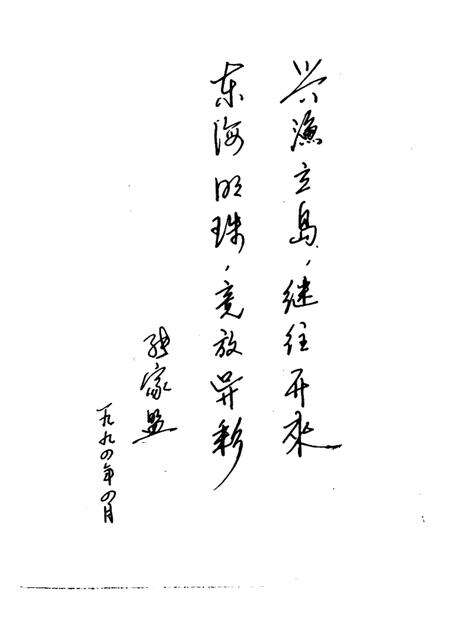 兴渔立岛，继往开来
东海明珠，竞放异彩
张家盟
一九九四年四月